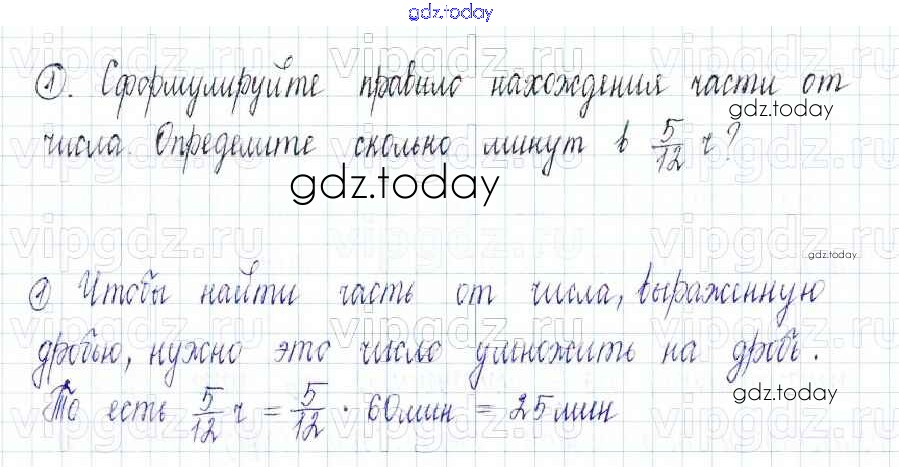 gdz.today
①. Сформулируйте правило нахождения части от
gdz.today
числа. Определите сколько минут в 5/12 ч?
gdz.today
gdz.today
① Чтобы найти часть от числа, выраженную
дробью, нужно это число умножить на дробь.
gdz.today
То есть 5/12 ч = 5/12 · 60мин = 25мин